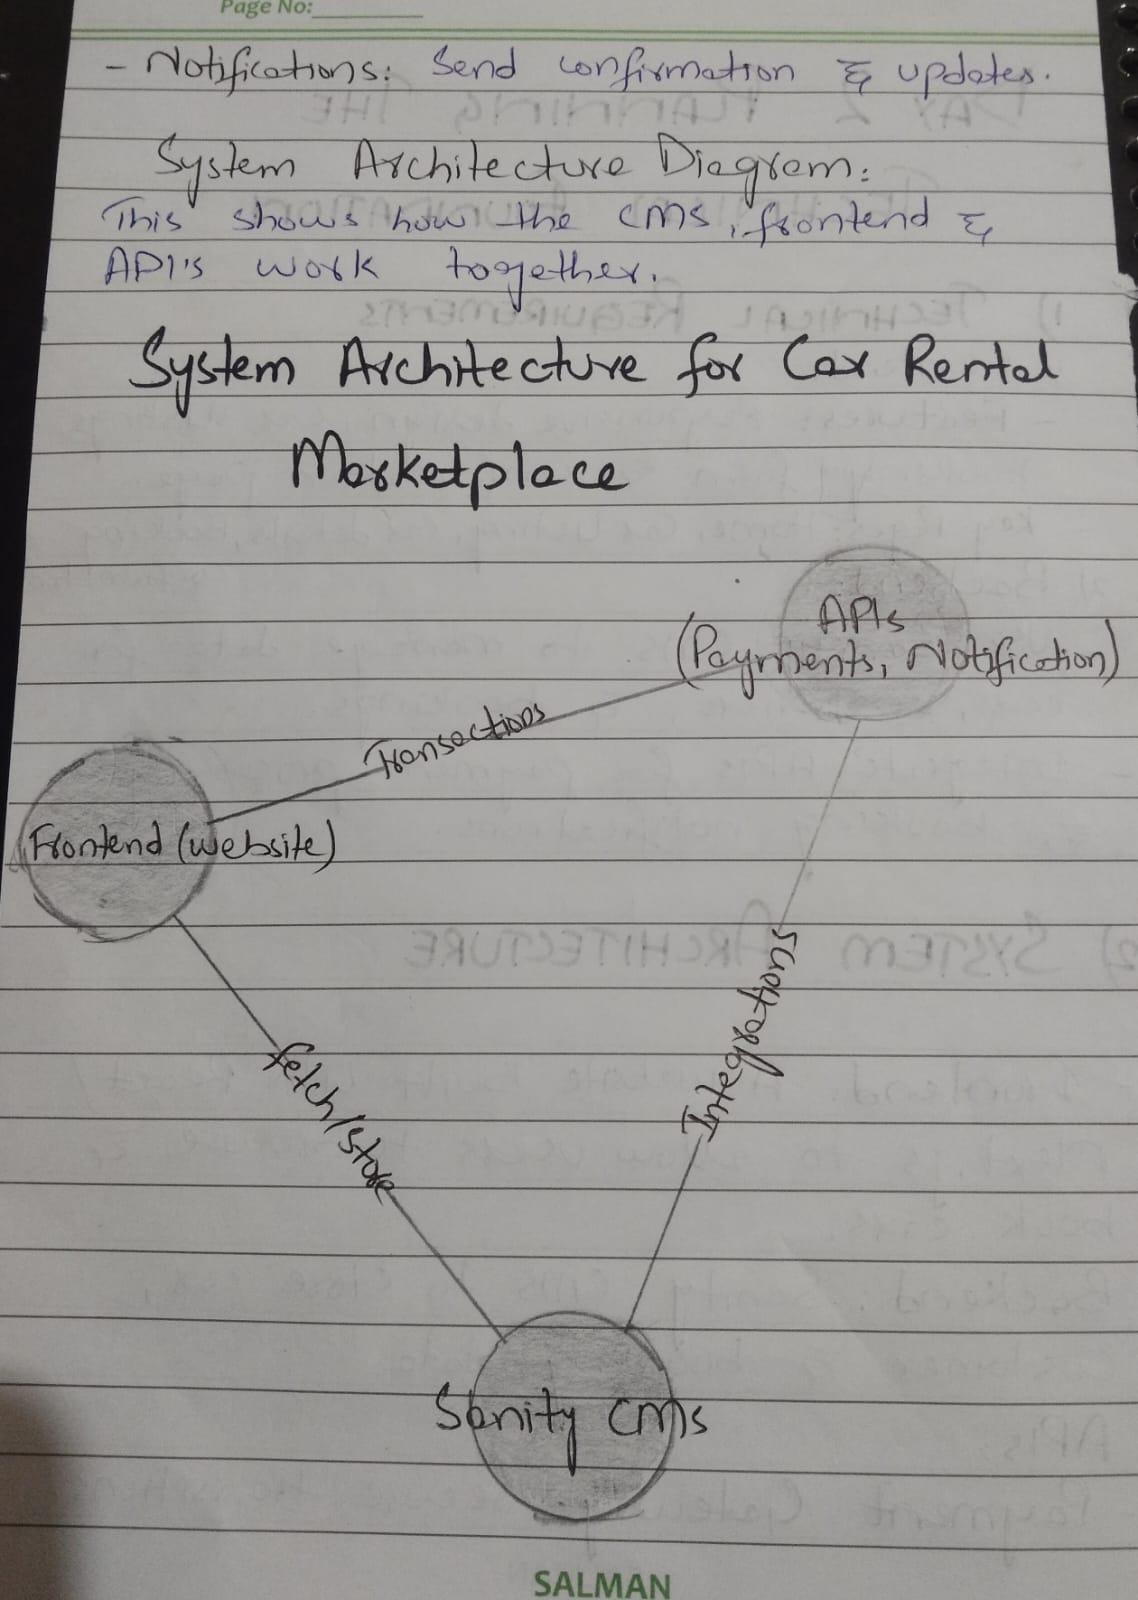 Page No:
- Notifications: Send confirmation & updates.
System Architecture Diagram:
This shows how the CMS, frontend &
API's work together.
System Architecture for Car Rental
Marketplace
APIs
(Payments, Notification)
Transactions
Frontend (website)
Integrations
fetch/store
Sanity CMS
SALMAN